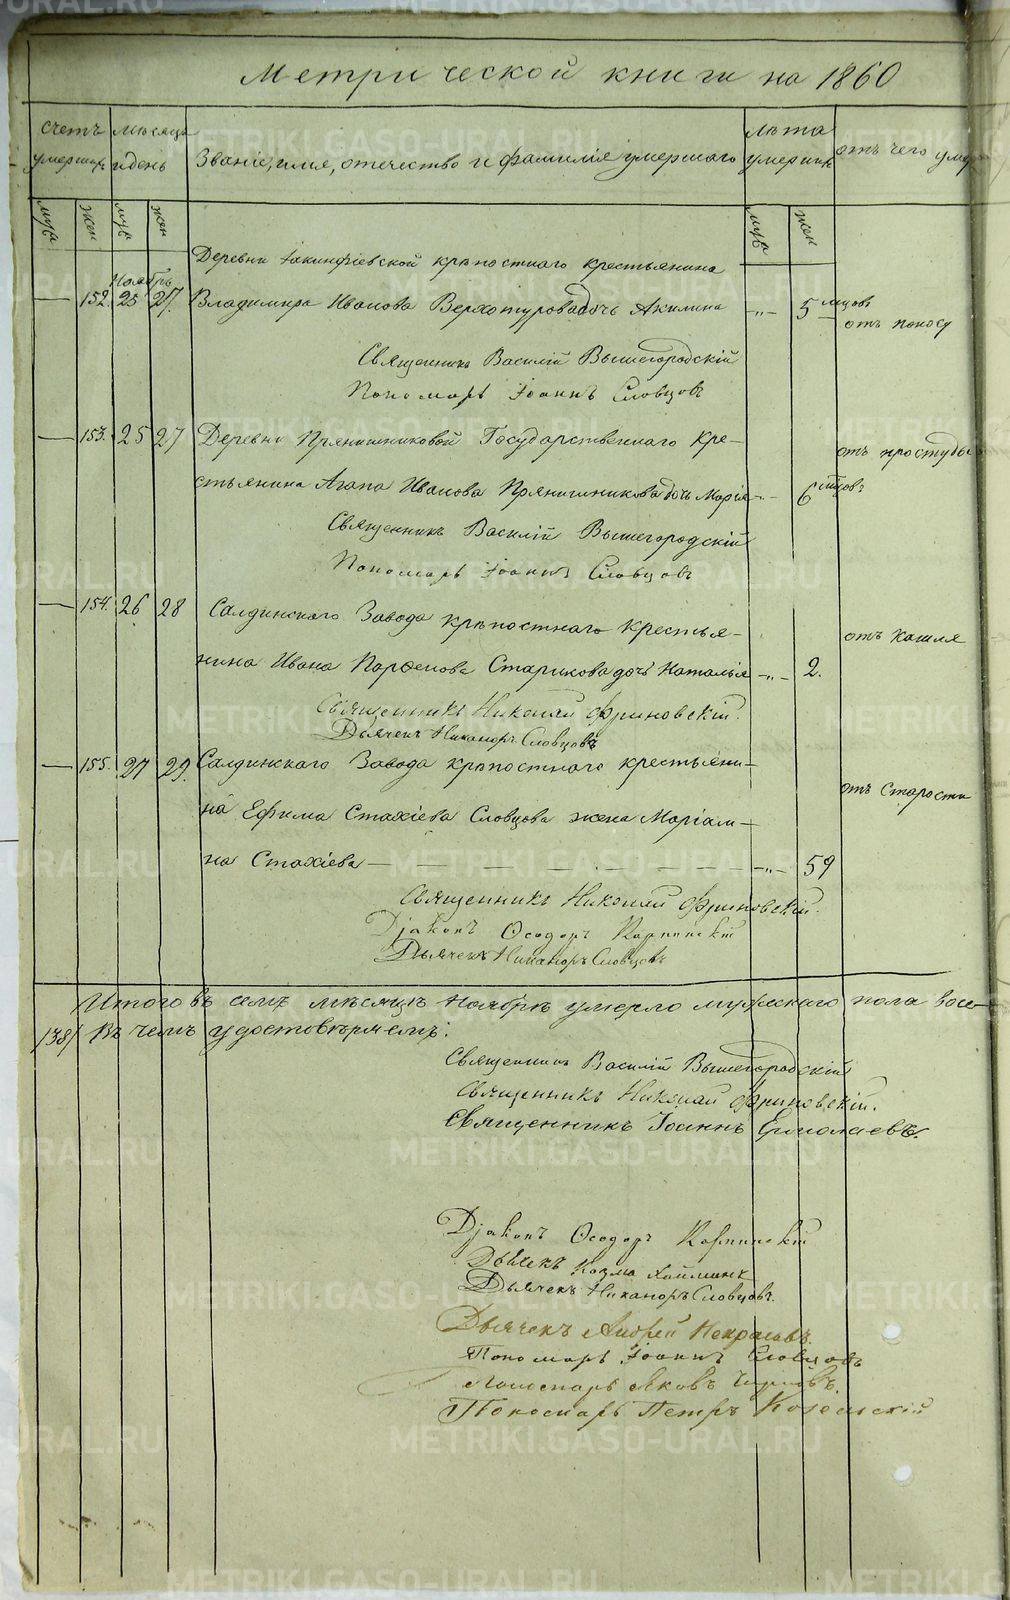 Метрической книги на 1860
счетъ умершихъ
мѣсяцъ и день
Званіе, имя, отечество и фамилія умершаго
лѣта умерших
отъ чего умер
муж жен муж жен муж жен
Деревни Акинфіевской крѣпостнаго крестьянина
Ноябрь
— 152. 25 27. Владимира Иванова Верхотурова дочь Акилина -„- 5 мцовъ отъ поносу
Священникъ Василій Вышегородскій
Пономарь Іоаннъ Словцовъ
— 153. 25 27 Деревни Прянишниковой Государственнаго кре-
отъ простуды
стьянина Агапа Иванова Прянишникова дочь Марія -„- 6 мцовъ
Священникъ Василій Вышегородскій
Пономарь Іоаннъ Словцовъ
— 154. 26 28 Салдинскаго Завода крѣпостнаго крестья-
отъ кашля
нина Ивана Парѳенова Старикова дочь Наталья -„- 2.
Священникъ Николай Фриновскій.
Дьячекъ Никаноръ Словцовъ
— 155. 27 29. Салдинскаго Завода крѣпостнаго крестьяни-
отъ Старости
на Ефима Стахіева Словцова жена Маріам-
на Стахіева — -„- 59
Священникъ Николай Фриновскій.
Діаконъ Ѳеодоръ Карпинскій
Дьячекъ Никаноръ Словцовъ
Итого въ семъ мѣсяцѣ Ноябрѣ умерло мужескаго пола восе-
/38/ Въ чемъ удостовѣряемъ:
Священникъ Василій Вышегородскій
Священникъ Николай Фриновскій.
Священникъ Іоаннъ Ермолаевъ.
Діаконъ Ѳеодоръ Карпинскій
Дьячекъ Козма
Дьячекъ Никаноръ Словцовъ.
Дьячекъ Андрей Некрасовъ.
Пономарь Іоаннъ Словцовъ
Пономарь Яковъ
Пономарь Петръ Козельскій
METRIKI.GASO-URAL.RU